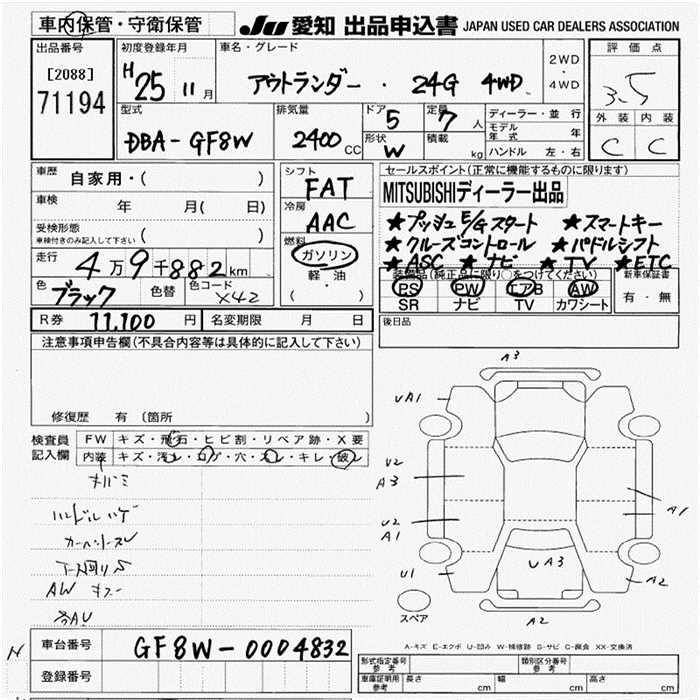 車内保管・守衛保管
JU 愛知 出品申込書 JAPAN USED CAR DEALERS ASSOCIATION
出品番号
[2088]
71194
初度登録年月
H25 11月
車名・グレード
アウトランダー・24G 4WD
2WD
・
4WD
評価点
3.5
外装 内装
C C
型式
DBA-GF8W
排気量
2400 CC
ドア 5
形状 W
定員 7人
積載 kg
ディーラー・並行
モデル年式 年
ハンドル 左・右
車歴 自家用・( )
車検 年 月( 日)
受検形態
車検付きのみ記入して下さい ( )
走行 4万9千882km
色 ブラック 色替 色コード X42
シフト
FAT
冷房
AAC
燃料
ガソリン
軽・油
( ・ )
セールスポイント(正常に機能するものに限ります)
MITSUBISHIディーラー出品
★プッシュE/Gスタート ★スマートキー
★クルーズコントロール ★パドルシフト
★ASC ★ナビ ★TV ★ETC
装備品(純正品に限り○をつけてください)
PS PW エアB AW
SR ナビ TV カワシート
新車保証書
有・無
R券 11,100円 名変期限 月 日
後日品
注意事項申告欄(不具合内容等は具体的に記入して下さい)
修復歴 有(箇所 )
検査員
記入欄
FW キズ・飛石・ヒビ割・リペア跡・X要
内装 キズ・汚レ・コゲ・穴・スレ・キレ・破レ
ハンドルハゲ
AW キズ
A3
UA1
U2
A3
U2
A1
U1
UA3
A1
A2
A2
スペア
A-キズ E-エクボ U-凹み W-補修跡 S-サビ C-腐食 XX-交換済
車台番号 GF8W-0004832
登録番号
型式指定番号
参考
類別区分番号
参考
車庫証明用
参考
長さ cm 幅 cm 高さ cm